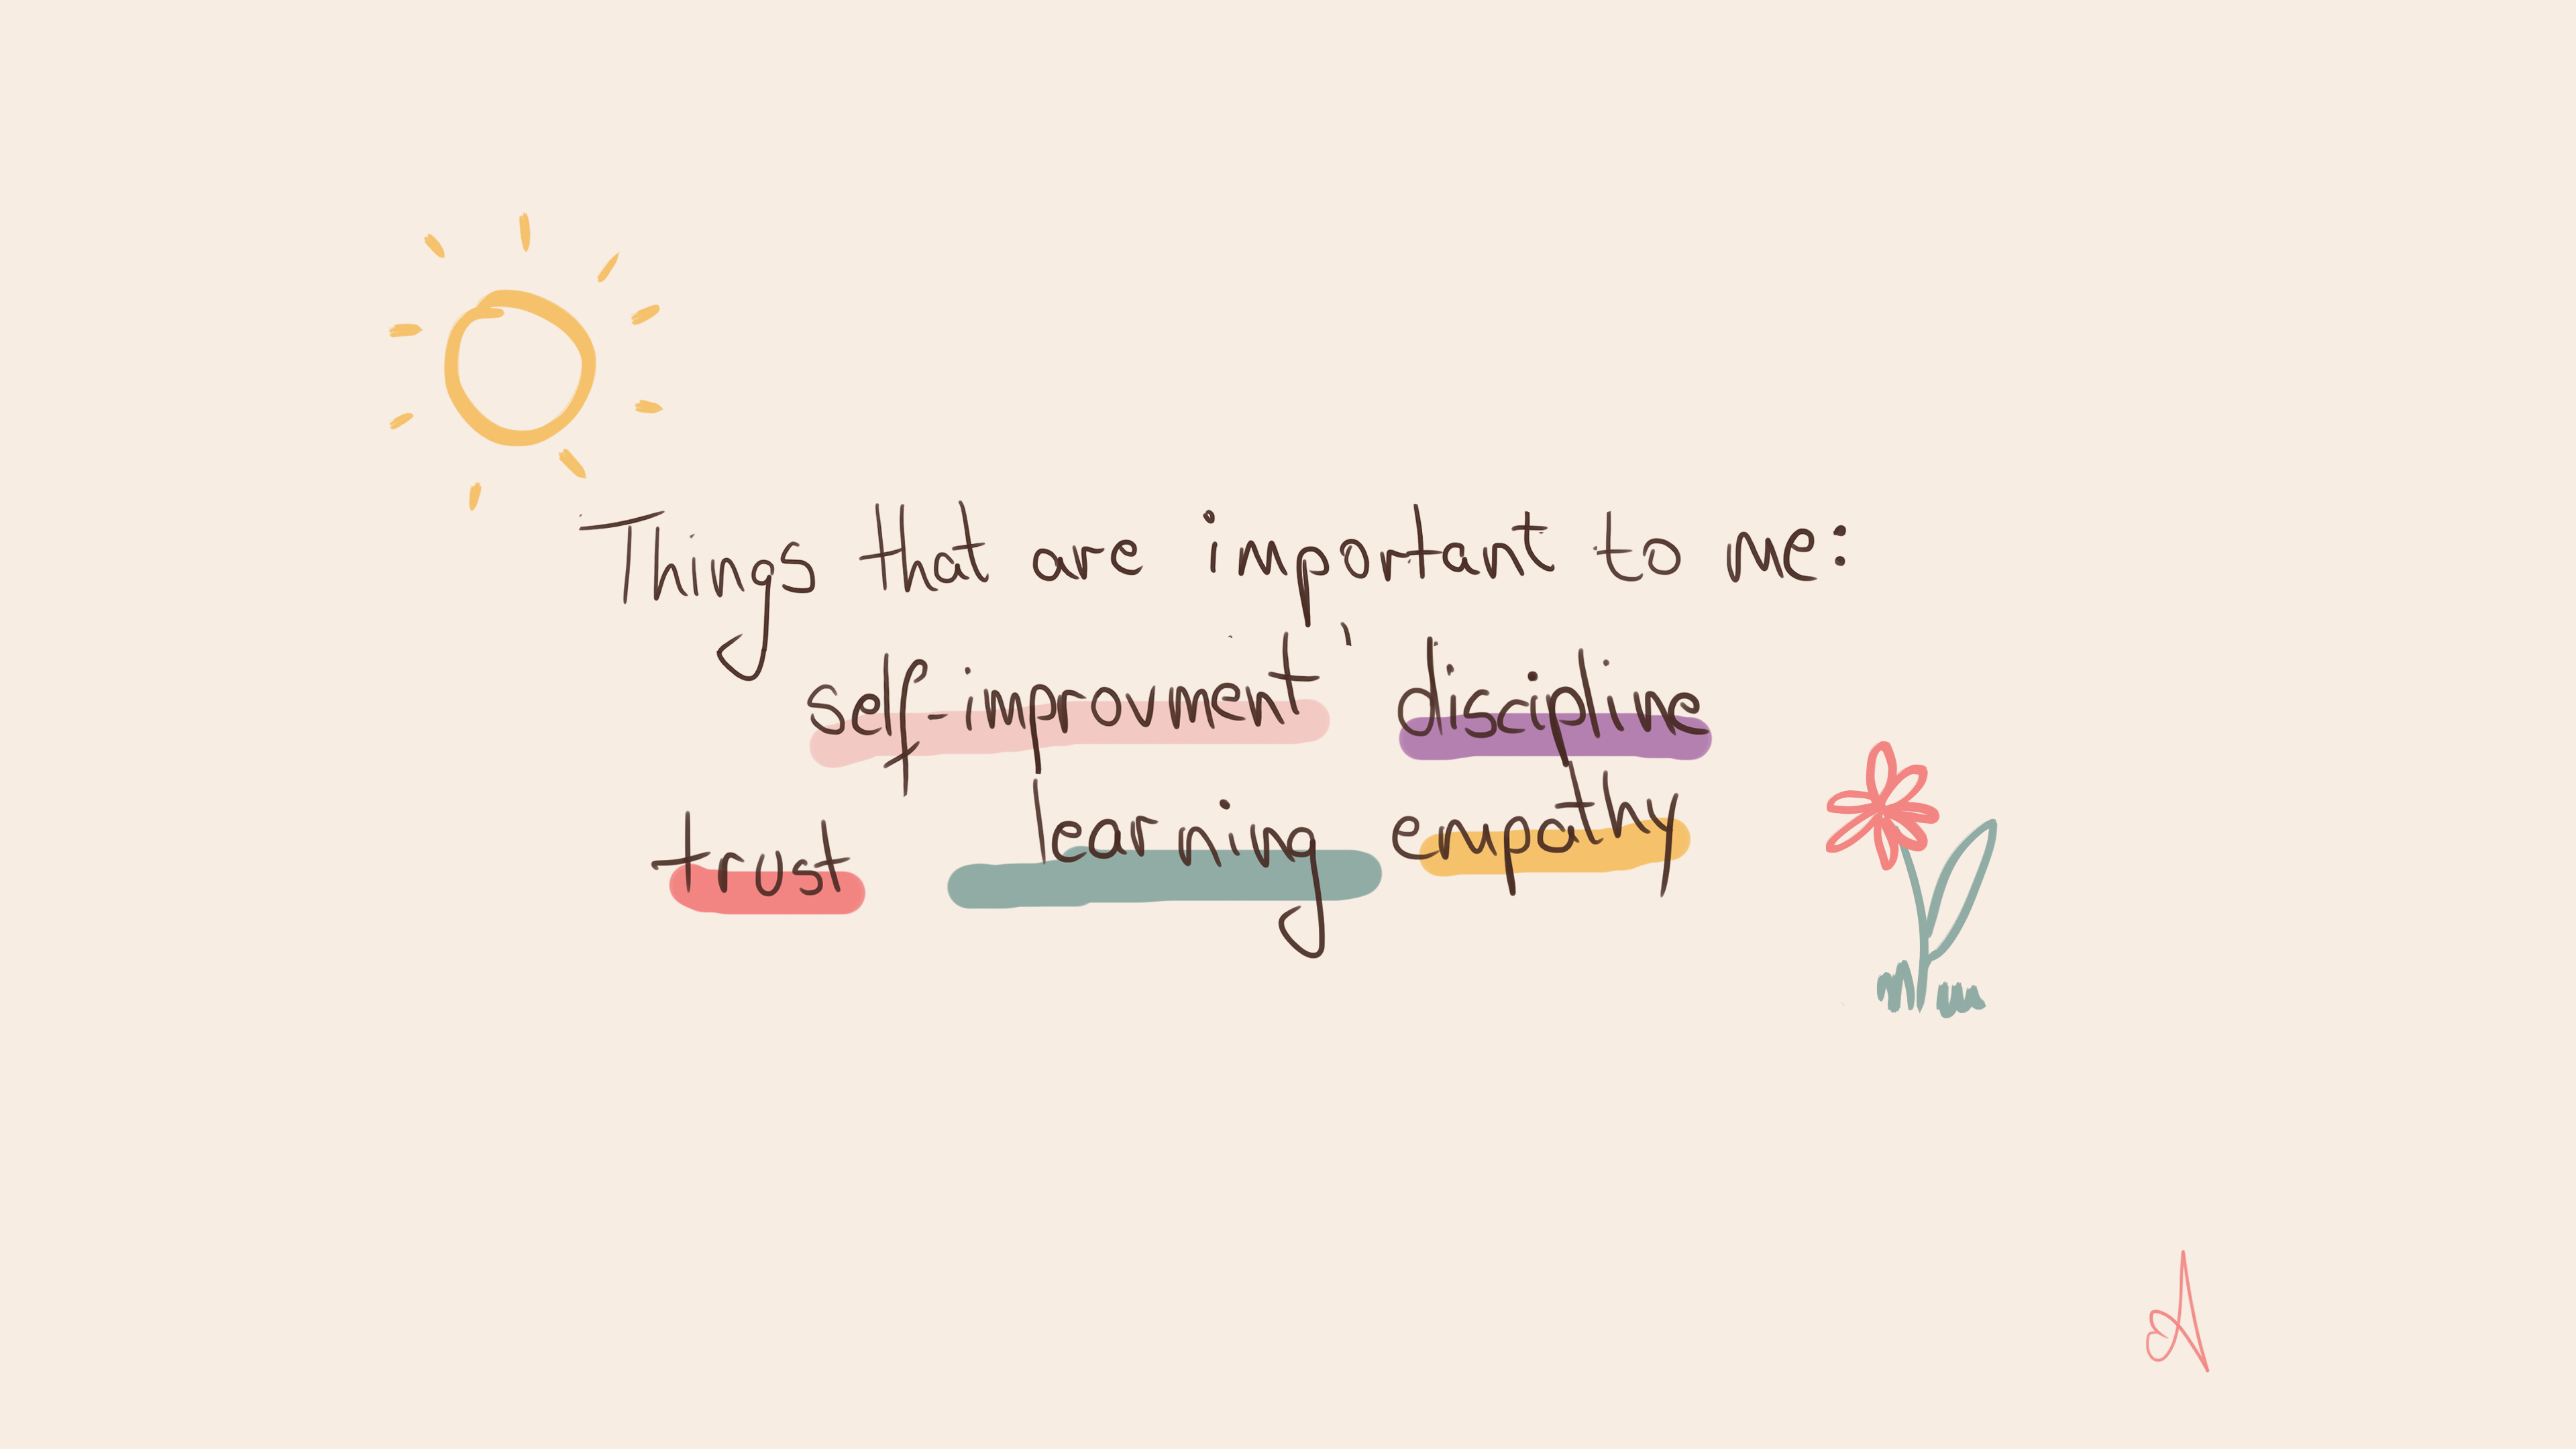 Things that are important to me:
self-improvment discipline
trust learning empathy
A